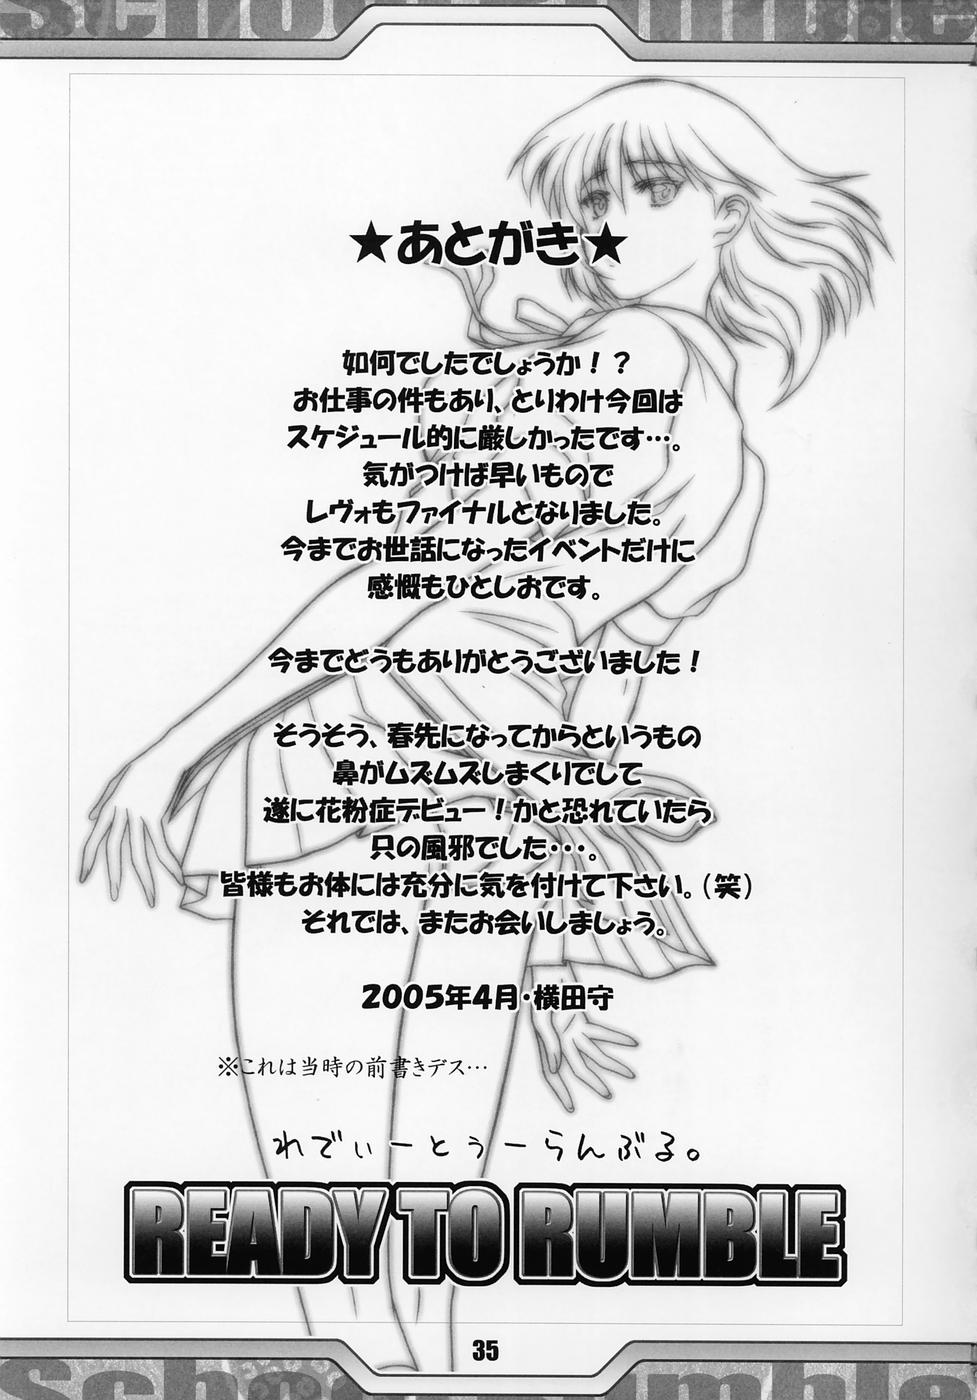 School Rumble
★あとがき★
如何でしたでしょうか！？
お仕事の件もあり、とりわけ今回は
スケジュール的に厳しかったです…。
気がつけば早いもので
レヴォもファイナルとなりました。
今までお世話になったイベントだけに
感慨もひとしおです。
今までどうもありがとうございました！
そうそう、春先になってからというもの
鼻がムズムズしまくりでして
遂に花粉症デビュー！かと恐れていたら
只の風邪でした・・・。
皆様もお体には充分に気を付けて下さい。（笑）
それでは、またお会いしましょう。
2005年4月・横田守
※これは当時の前書きデス…
れでぃーとぅーらんぶる。
READY TO RUMBLE
35
School Rumble